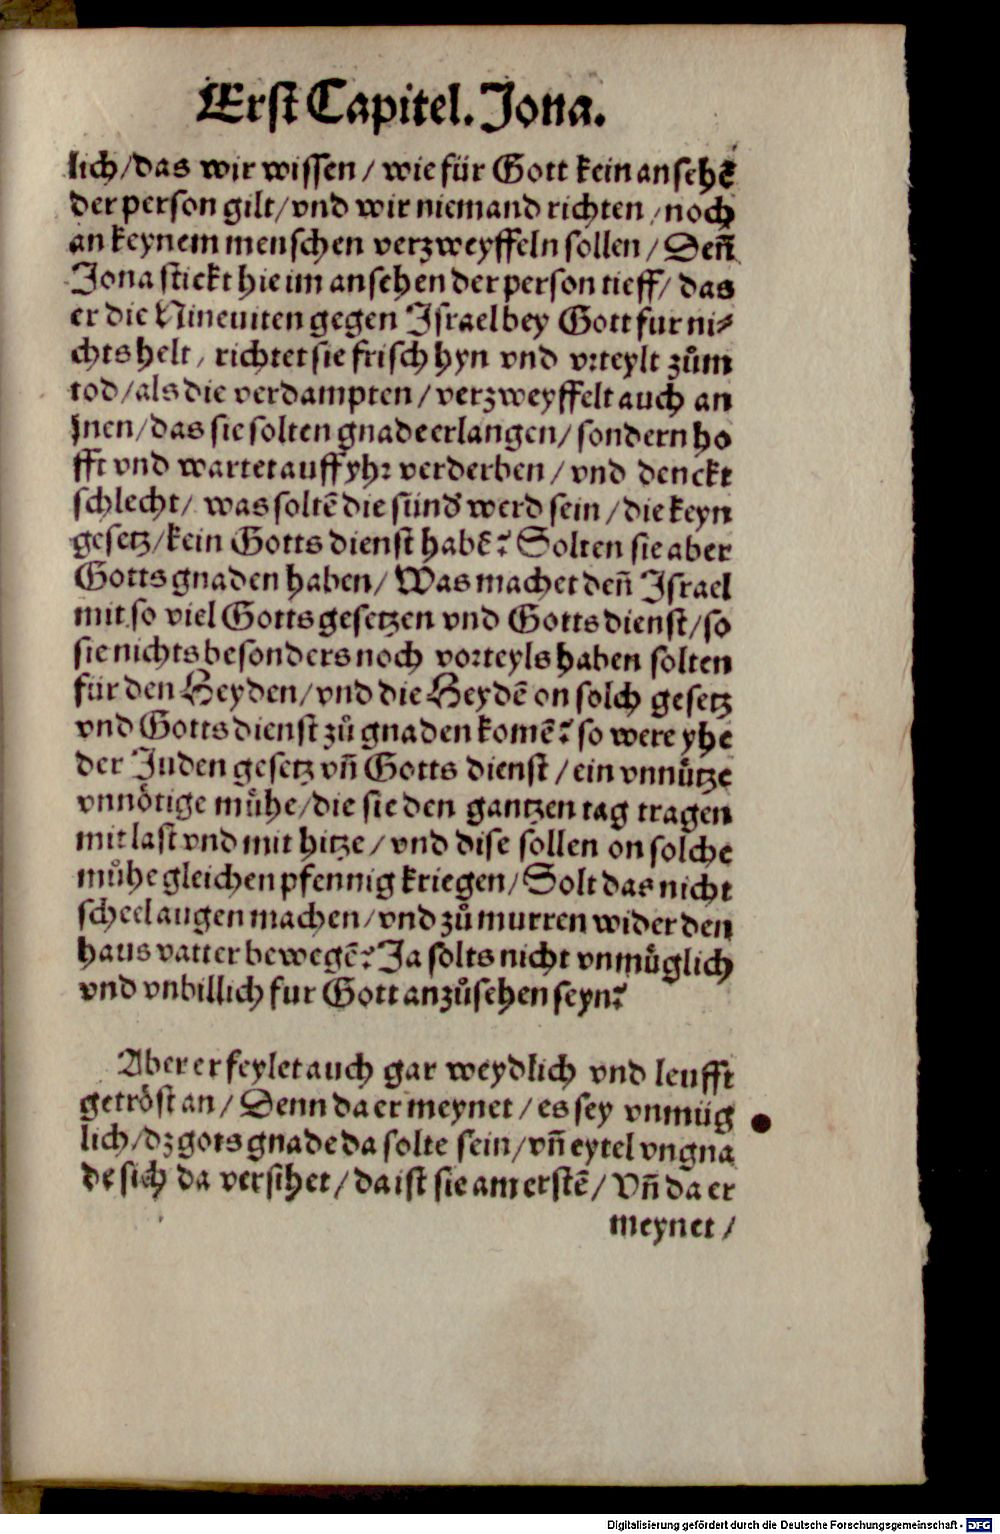 Erst Capitel. Jona.
lich/das wir wissen / wie für Gott kein ansehẽ
der person gilt/vnd wir niemand richten / noch
an keynem menschen verzweyffeln sollen / Deñ
Jona stickt hie im ansehen der person tieff/ das
er die Nineuiten gegen Israel bey Gott fur ni⸗
chts helt / richtet sie frisch hyn vnd vrteylt zům
tod/als die verdampten / verzweyffelt auch an
jnen/das sie solten gnade erlangen/ sondern ho
fft vnd wartet auff yhr verderben / vnd denckt
schlecht/ was soltẽ die sünd' werd sein / die keyn
gesetz/kein Gotts dienst habẽ? Solten sie aber
Gotts gnaden haben/ Was machet deñ Israel
mit so viel Gotts gesetzen vnd Gotts dienst/so
sie nichts besonders noch vorteyls haben solten
für den Heyden/vnd die Heydẽ on solch gesetz
vnd Gotts dienst zů gnaden komẽ? so were yhe
der Juden gesetz vñ Gotts dienst / ein vnnůtze
vnnötige můhe/die sie den gantzen tag tragen
mit last vnd mit hitze / vnd dise sollen on solche
můhe gleichen pfennig kriegen/ Solt das nicht
scheel augen machen/vnd zů murren wider den
haus vatter bewegẽ? Ja solts nicht vnmůglich
vnd vnbillich fur Gott anzůsehen seyn?
Aber er feylet auch gar weydlich vnd leufft
getröst an / Denn da er meynet / es sey vnmüg
lich/dz gots gnade da solte sein/vñ eytel vngna
de sich da versihet / da ist sie am erstẽ / Vñ da er
meynet /
Digitalisierung gefördert durch die Deutsche Forschungsgemeinschaft - DFG